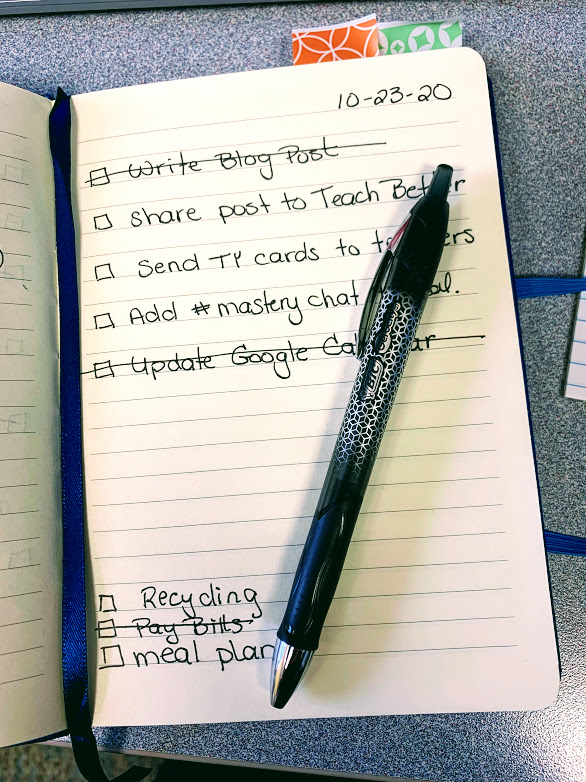 10-23-20
Write Blog Post
Share post to Teach Better
Send TY cards to
Add #mastery chat
Update Google Calendar
Recycling
Pay Bills
meal plan